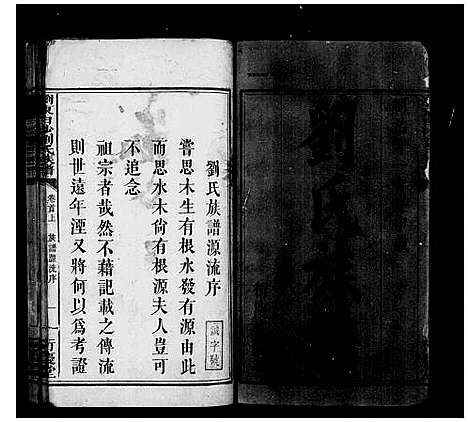 劉氏族
劉氏族譜源流序
誠字號
嘗思木生有根水發有源由此
而思水木尙有根源夫人豈可
不追念
祖宗者哉然不藉記載之傳流
則世遠年湮又將何以爲考證
劉氏族譜
卷首上
族譜源流序
一